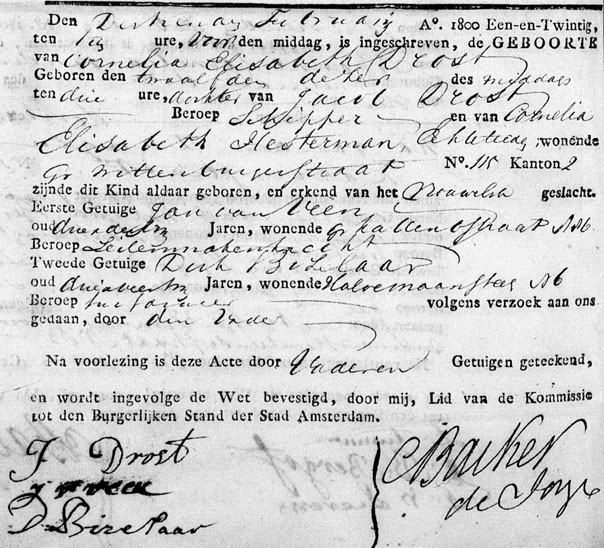 Den Dertienden Februarij A°. 1800 Een-en-Twintig,
ten tien ure, voor den middag, is ingeschreven, de GEBOORTE
van Cornelia Elisabeth Drost
Geboren den twaalfden dezer des middags
ten drie ure, dochter van Jacob Drost
Beroep Schipper en van Cornelia
Elisabeth Hesterman, Echtelieden, wonende
Gr Wittenburgerstraat N°. 115 Kanton 2
zijnde dit Kind aldaar geboren, en erkend van het Vrouwelijk geslacht.
Eerste Getuige Jan van Veen
oud Jaren, wonende Gr
Beroep
Tweede Getuige Dirk Bizelaar
oud Jaren, wonende Halvemaansteeg N6
Beroep volgens verzoek aan ons
gedaan, door den Vader
Na voorlezing is deze Acte door Vader en Getuigen geteekend,
en wordt ingevolge de Wet bevestigd, door mij, Lid van de Kommissie
tot den Burgerlijken Stand der Stad Amsterdam.
J Drost
D Bizelaar
C Backer
de Jonge